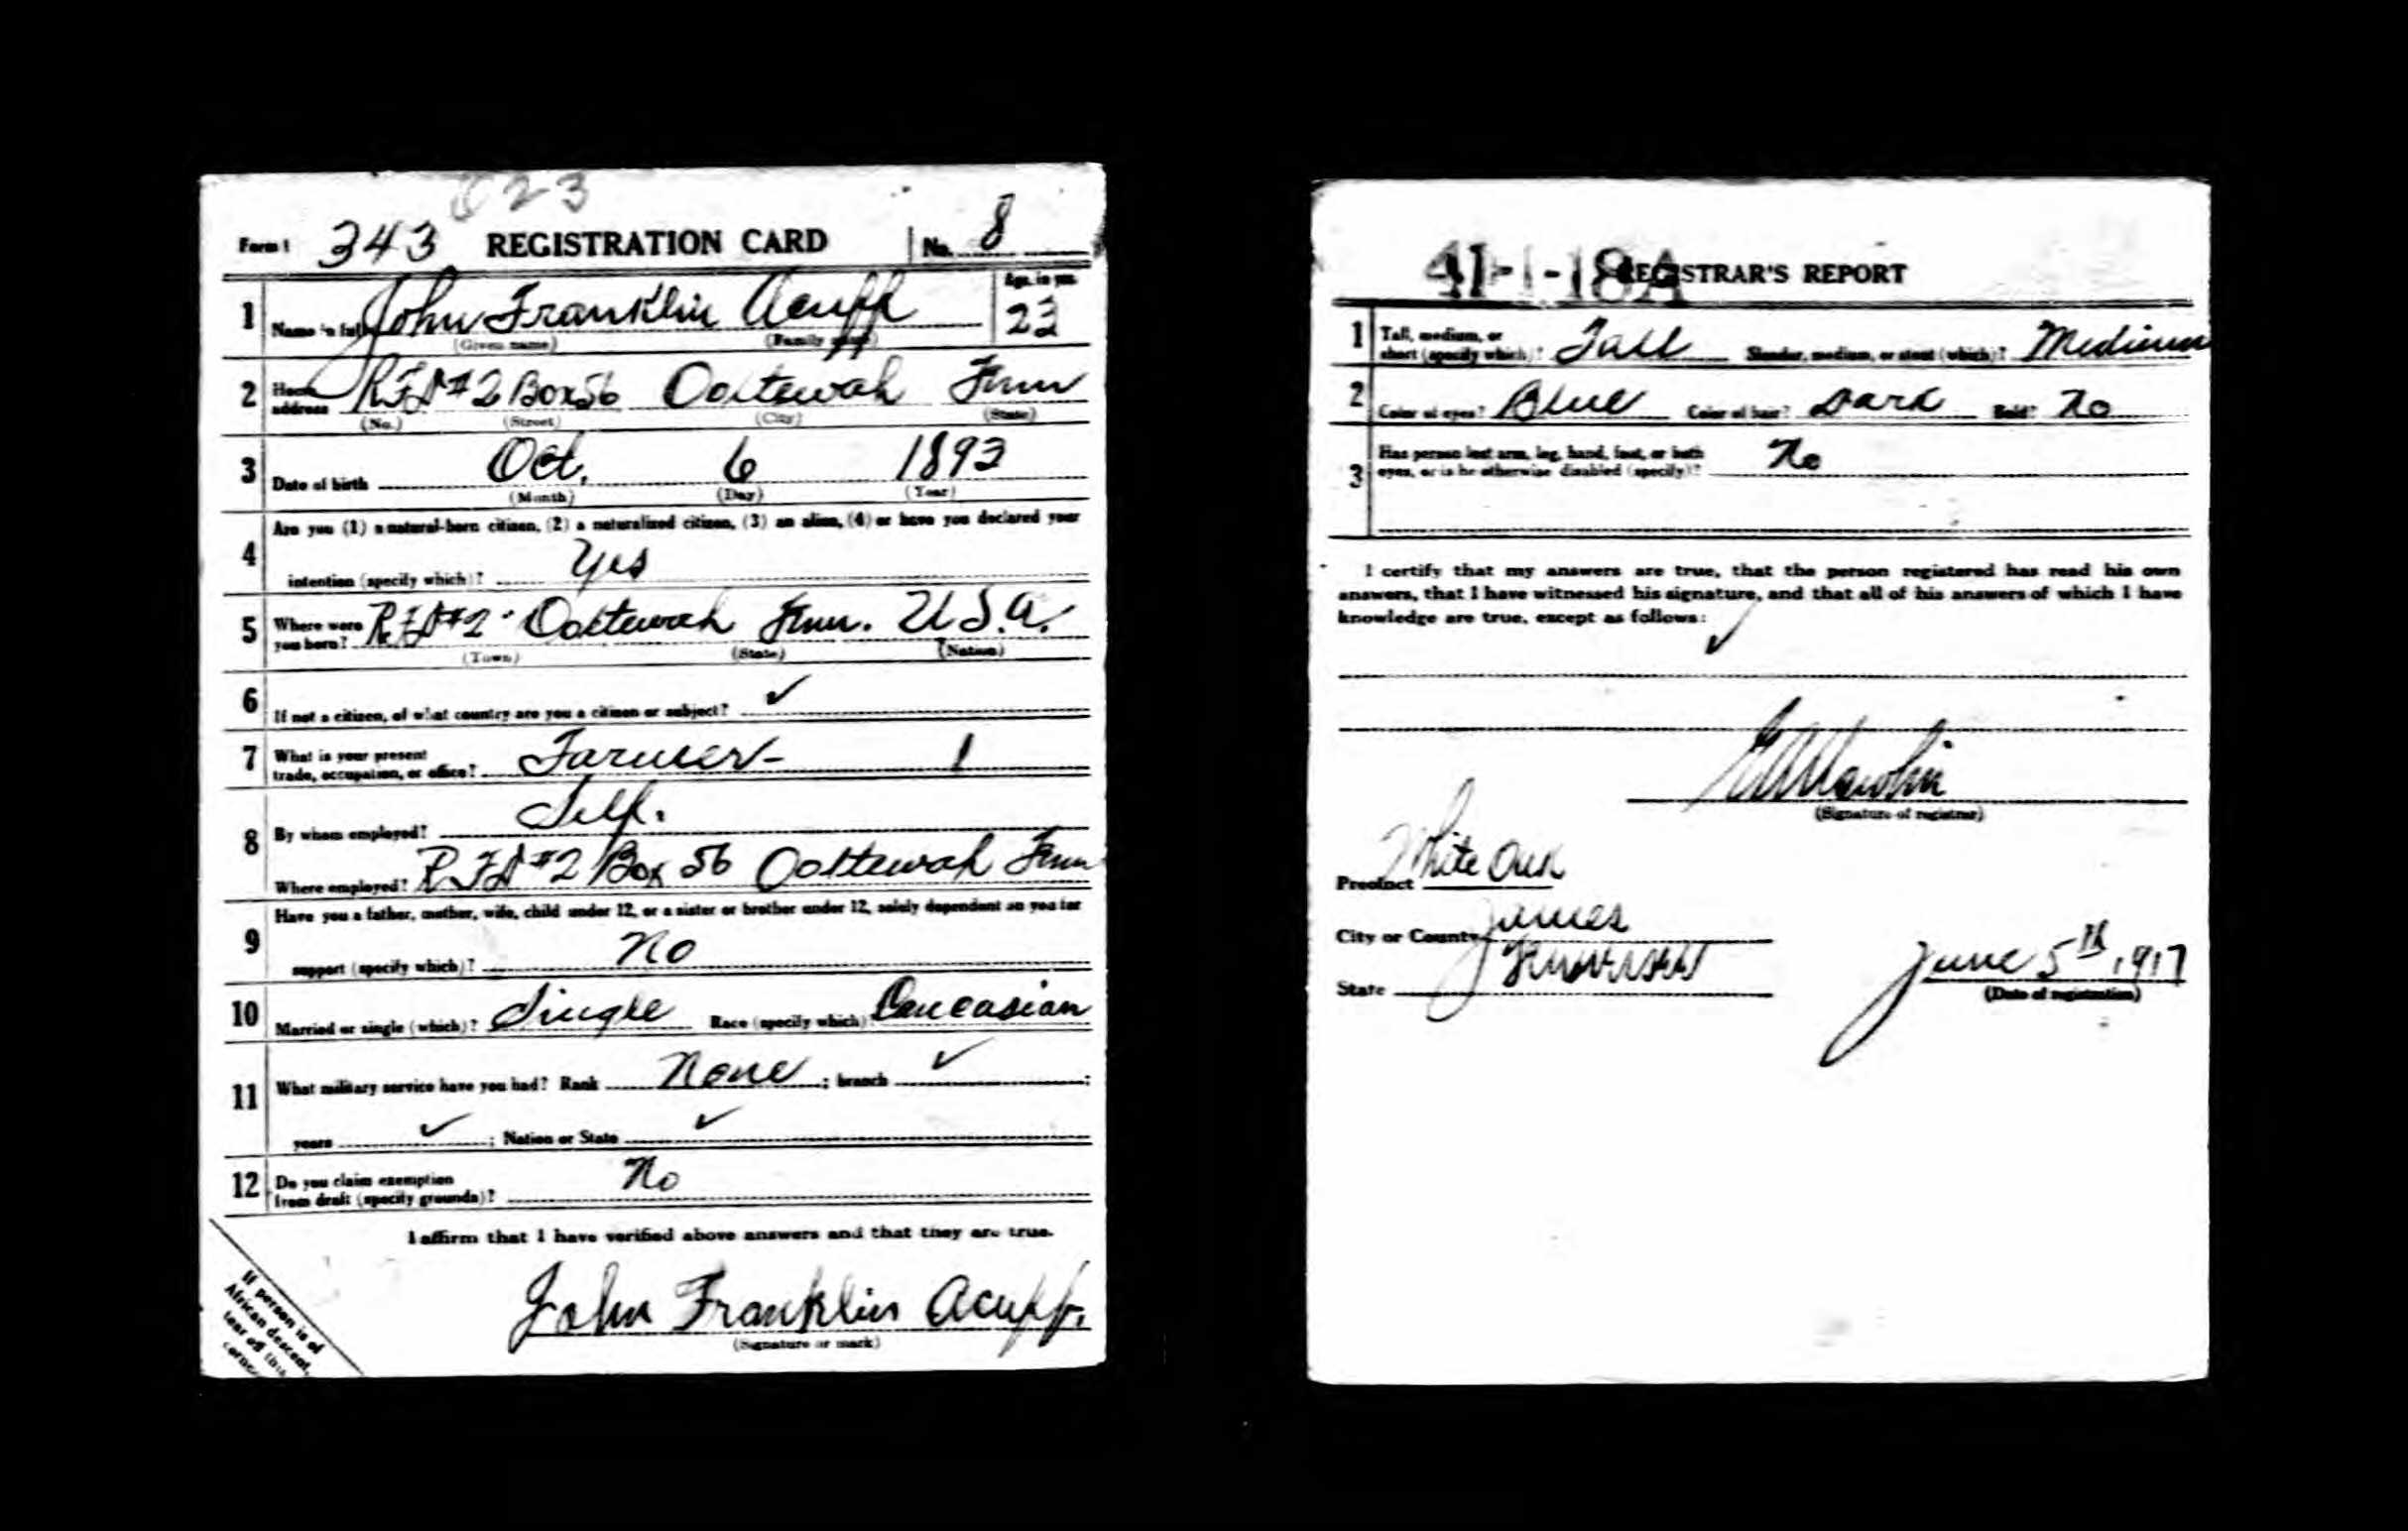 23
Form 1 343 REGISTRATION CARD No. 8
1 Name in full John Franklin Acuff Age, in yrs. 23
(Given name) (Family name)
2 Home address RFD #2 Box 56 Ooltewah Tenn
(No.) (Street) (City) (State)
3 Date of birth Oct. 6 1893
(Month) (Day) (Year)
4 Are you (1) a natural-born citizen, (2) a naturalized citizen, (3) an alien, (4) or have you declared your
intention (specify which)? Yes
5 Where were you born? RFD #2 Ooltewah Tenn. U.S.A.
(Town) (State) (Nation)
6 If not a citizen, of what country are you a citizen or subject? ✓
7 What is your present
trade, occupation, or office? Farmer 1
8 By whom employed? Self.
Where employed? RFD #2 Box 56 Ooltewah Tenn
9 Have you a father, mother, wife, child under 12, or a sister or brother under 12, solely dependent on you for
support (specify which)? No
10 Married or single (which)? Single Race (specify which)? Caucasian
11 What military service have you had? Rank None ; branch ✓ ;
years ✓ ; Nation or State ✓
12 Do you claim exemption
from draft (specify grounds)? No
I affirm that I have verified above answers and that they are true.
John Franklin Acuff.
(Signature or mark)
If person is of
African descent,
tear off this
corner
41-1-18A REGISTRAR'S REPORT
1 Tall, medium, or
short (specify which)? Tall Slender, medium, or stout (which)? Medium
2 Color of eyes? Blue Color of hair? Dark Bald? No
3 Has person lost arm, leg, hand, foot, or both
eyes, or is he otherwise disabled (specify)? No
I certify that my answers are true, that the person registered has read his own
answers, that I have witnessed his signature, and that all of his answers of which I have
knowledge are true, except as follows:
✓
(Signature of registrar)
Precinct White Oak
City or County James
State Tennessee
June 5th, 1917
(Date of registration)